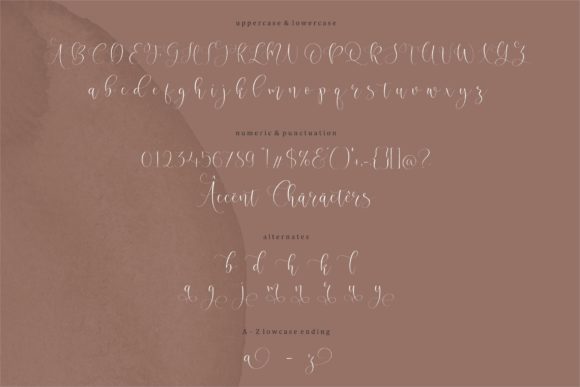 uppercase & lowercase
A B C D E F G H I J K L M N O P Q R S T U V W X Y Z
a b c d e f g h i j k l m n o p q r s t u v w x y z
numeric & punctuation
0 1 2 3 4 5 6 7 8 9 "! //#$%&'()*+.-{}[]@?
Âccënt Chäräctêrs
alternates
b d h k l
a g j m n r u y
A - Z lowcase ending
a - z